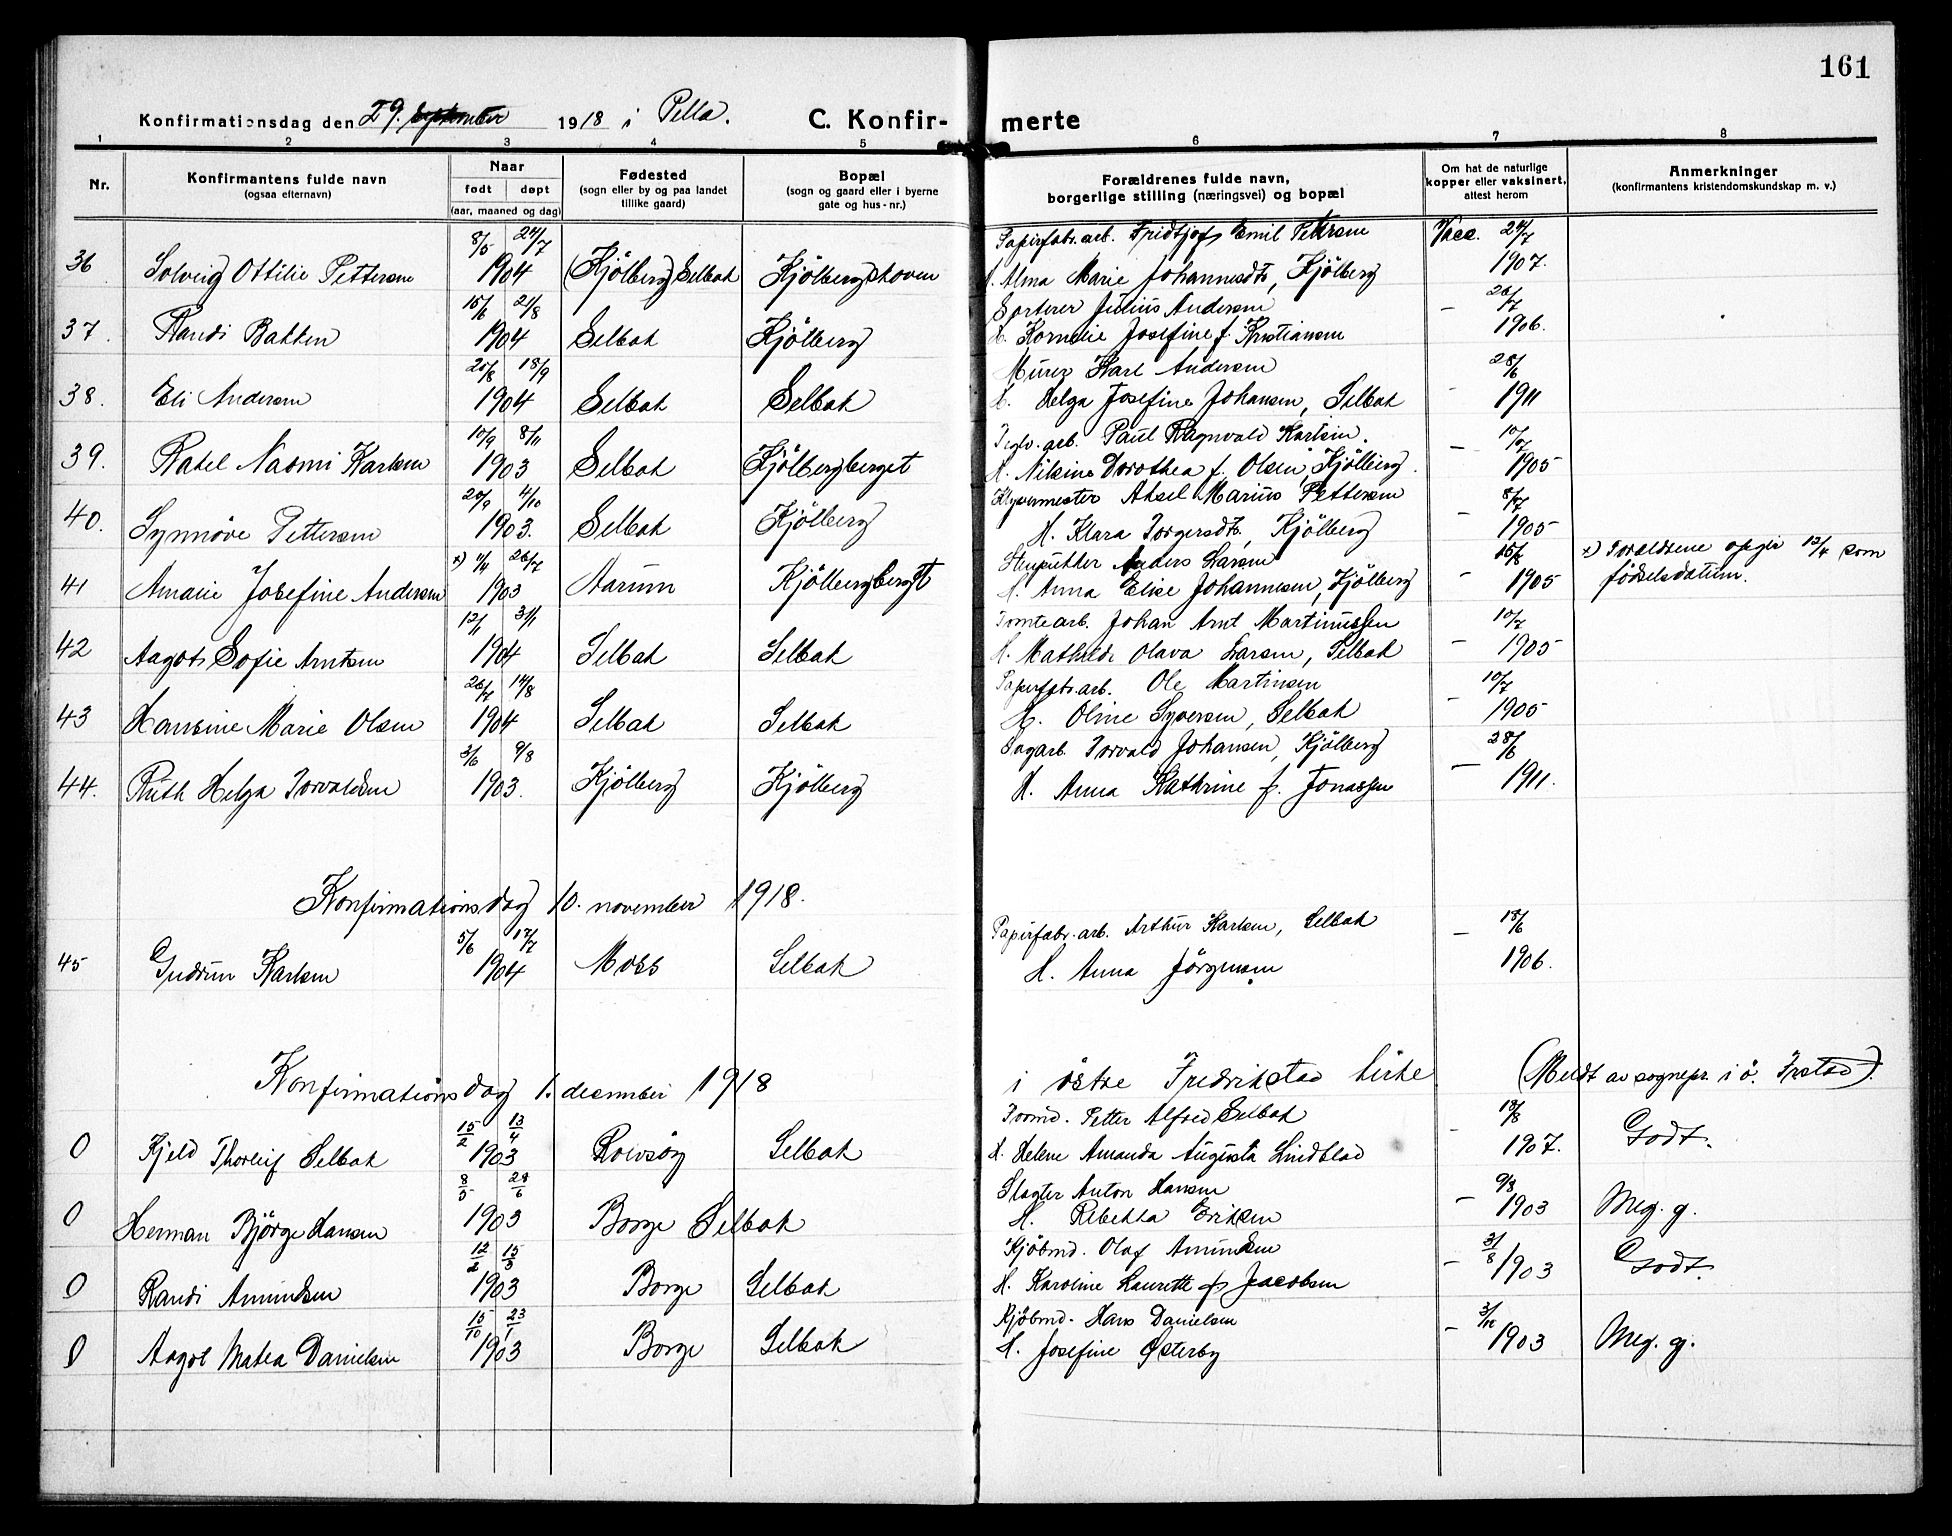 161
Konfirmationsdag den 29. september 1918 i Pella. C. Konfir- merte
1 2 3 4 5 6 7 8
Nr. Konfirmantens fulde navn (ogsaa efternavn) Naar født døpt (aar, maaned og dag) Fødested (sogn eller by og paa landet tillike gaard) Bopæl (sogn og gaard eller i byerne gate og hus-nr.) Forældrenes fulde navn, borgerlige stilling (næringsvei) og bopæl Om hat de naturlige kopper eller vaksinert, attest herom Anmerkninger (konfirmantens kristendomskundskap m. v.)
8/5 24/7 Papirfabr. arb. Fridtjof Emil Pettersen Vacc. 24/7
36 Solveig Ottilie Pettersen 1904 (Kjölberg) Selbak Kjölbergskoven H. Alma Marie Johannesdtr, Kjölberg 1907.
15/6 21/8 Sorterer Julius Andersen - 26/7
37. Randi Bakken 1904 Selbak Kjölberg H. Kornelie Josefine f. Kristiansen 1906.
20/8 18/9 Murer Karl Andersen 28/6
38. Eli Andersen 1904 Selbak Selbak H. Helga Josefine Johansen, Selbak - 1911
10/9 8/11 Teglv. arb. Paul Ragnvald Karlsen. 10/7
39. Rakel Naomi Karlsen 1903 Selbak Kjölbergberget H. Nilsine Dorothea f. Olsen, Kjölberg. - 1905
20/9 4/10 Klyvermester Aksel Marius Pettersen 8/7
40. Synnöve Pettersen 1903. Selbak Kjölberg H. Klara Torgersdtr, Kjölberg - 1905
x) 11/4 26/7 Stenhukker Anders Larsen 15/8 x) Forældrene opgir 12/4 som
41 Amalie Josefine Andersen 1903 Aarum Kjölbergberget H. Anna Elise Johannesen, Kjölberg - 1905 födselsdatum.
12/11 31/1 Tomtearb. Johan Arnt Martinussen 10/7
42 Aagot Sofie Arntsen 1904 Selbak Selbak H. Mathilde Olava Larsen, Selbak - 1905
26/4 14/8 Papirfabr. arb. Ole Martinsen 10/7
43 Hansine Marie Olsen 1904 Selbak Selbak H. Oline Syversen, Selbak - 1905
3/6 9/8 Sagarb. Torvald Johansen, Kjölberg 28/6
44. Ruth Helga Torvaldsen 1903. Kjölberg Kjölberg H. Anna Kathrine f. Jonassen - 1911.
Konfirmationsdag 10. november 1918.
5/6 17/7 Papirfabr. arb. Arthur Karlsen, Selbak - 18/6
45 Gudrun Karlsen 1904 Moss Selbak H. Anna Jörgensen 1906.
Konfirmationsdag 1. desember 1918 i östre Fredrikstad kirke (Meldt av sognepr. i ö. Frstad).
15/2 13/4 Formd. Petter Alfred Selbak 18/8
0 Kjeld Thorleif Selbak 1903 Rolvsöy Selbak H. Helene Amanda Augusta Lindblad - 1907. Godt.
8/5 28/6 Slagter Anton Hansen 9/8
0 Herman Björge Hansen 1903 Borge Selbak H. Rebekka Eriksen - 1903 Meg. g.
12/2 15/3 Kjöbmd. Olaf Amundsen 31/8
0 Randi Amundsen 1903 Borge Selbak H. Karoline Laurette f. Jacobsen - 1903 Godt.
15/10 23/1 Kjöbmd. Hans Danielsen 3/12
0 Aagot Matea Danielsen 1903 Borge Selbak H. Josefine Østerby - 1903 Meg. g.